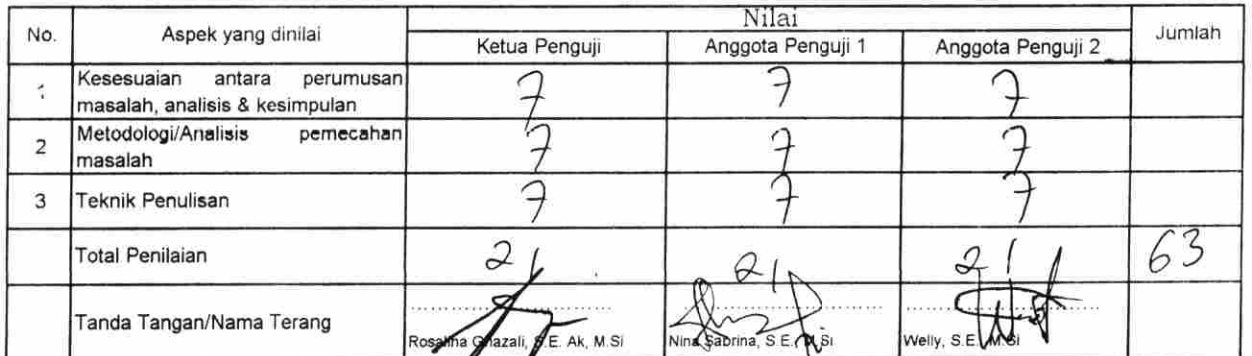 No. Aspek yang dinilai Nilai Jumlah
Ketua Penguji Anggota Penguji 1 Anggota Penguji 2
1 Kesesuaian antara perumusan masalah, analisis & kesimpulan 7 7 7
2 Metodologi/Analisis pemecahan masalah 7 7 7
3 Teknik Penulisan 7 7 7
Total Penilaian 21 21 21 63
Tanda Tangan/Nama Terang
Rosalina Ghazali, S.E. Ak, M.Si Nina Sabrina, S.E., M.Si Welly, S.E., M.Si